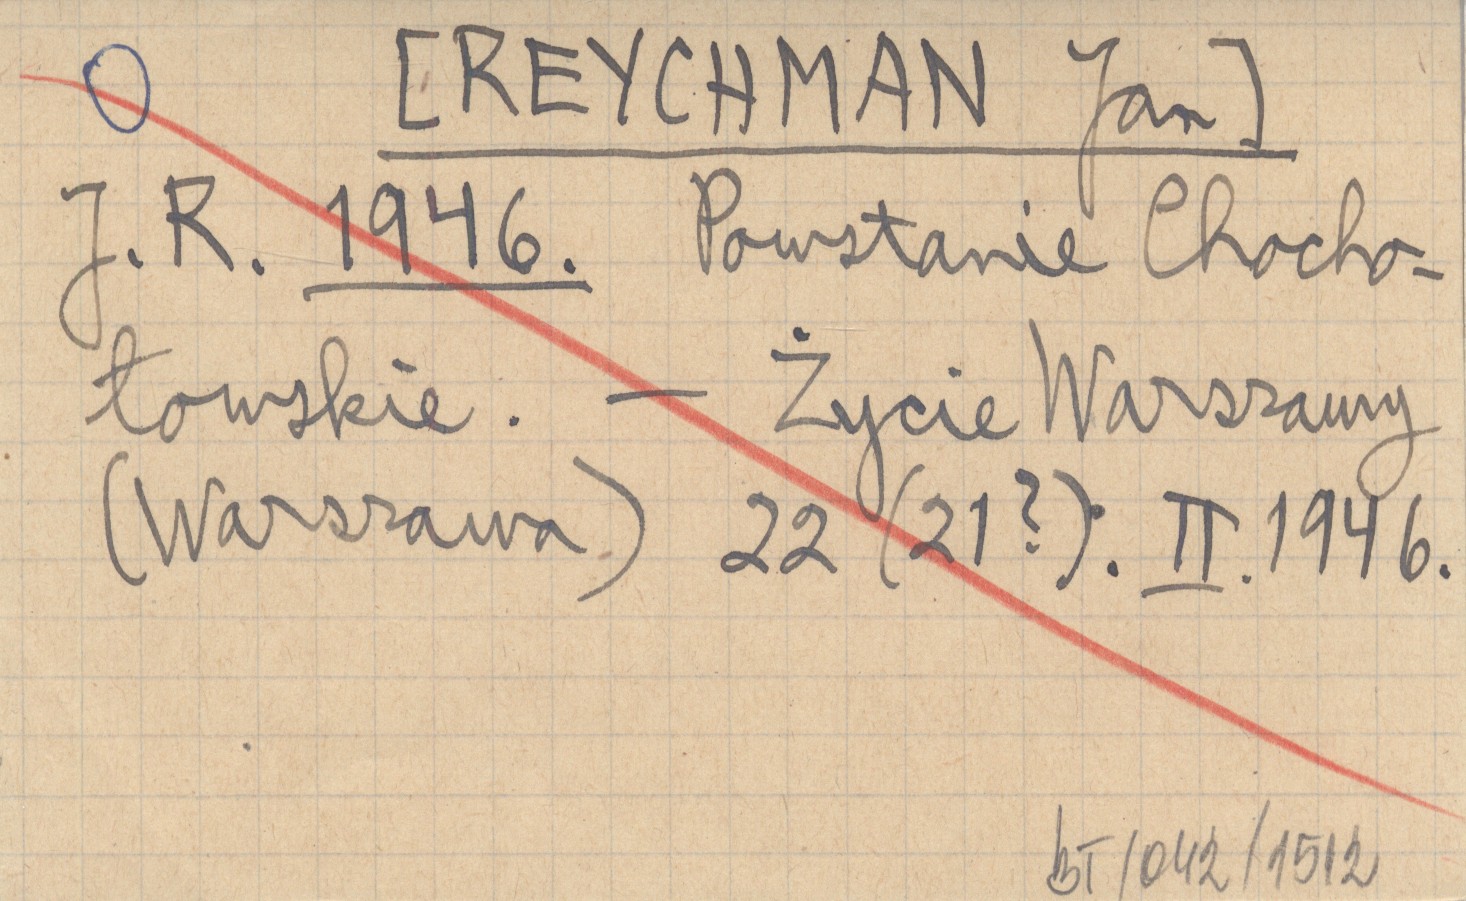 [REYCHMAN Jan]
J.R. 1946. Powstanie Chocho-
łowskie. — Życie Warszawy
(Warszawa) 22 (21?). II. 1946.
BT/042/1512